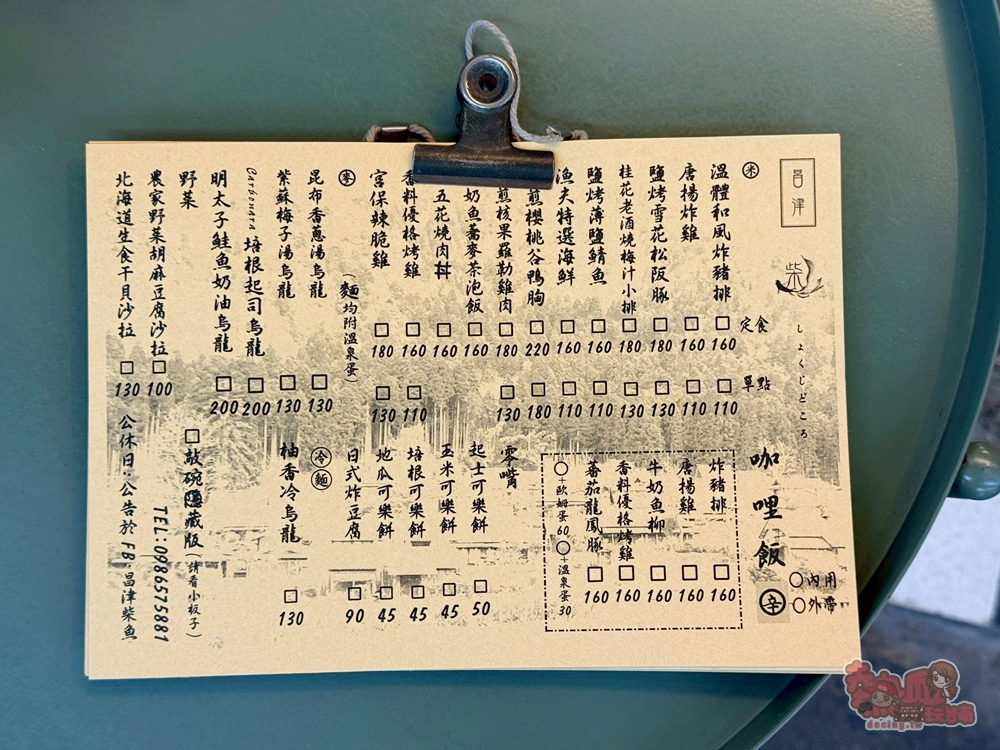 昌津
柴
しょくじどころ
內用
外帶
定食
單點
米
溫體和風炸豬排 160 110
唐揚炸雞 160 110
鹽烤雪花松阪豚 180 130
桂花老酒燒梅汁小排 180 130
鹽烤薄鹽鯖魚 160 110
漁夫特選海鮮 160 110
煎櫻桃谷鴨胸 220 180
煎核果羅勒雞肉 180 130
奶魚蕎麥茶泡飯 160
五花燒肉丼 160
香料優格烤雞 160 110
宮保辣脆雞 180 130
麥
(麵均附溫泉蛋)
昆布香蔥湯烏龍 130
紫蘇梅子湯烏龍 130
Carbonara 培根起司烏龍 200
明太子鮭魚奶油烏龍 200
野菜
農家野菜胡麻豆腐沙拉 100
北海道生食干貝沙拉 130
咖哩飯
辛
炸豬排 160
唐揚雞 160
牛奶魚柳 160
香料優格烤雞 160
蕃茄龍鳳豚 160
+歐姆蛋60
+溫泉蛋30
零嘴
起士可樂餅 50
玉米可樂餅 45
培根可樂餅 45
地瓜可樂餅 45
日式炸豆腐 90
冷麵
柚香冷烏龍 130
敲碗隱藏版(請看小板子)
TEL:0986575881
公休日:公告於 FB,昌津柴魚
熱血玩台南
decing.tw